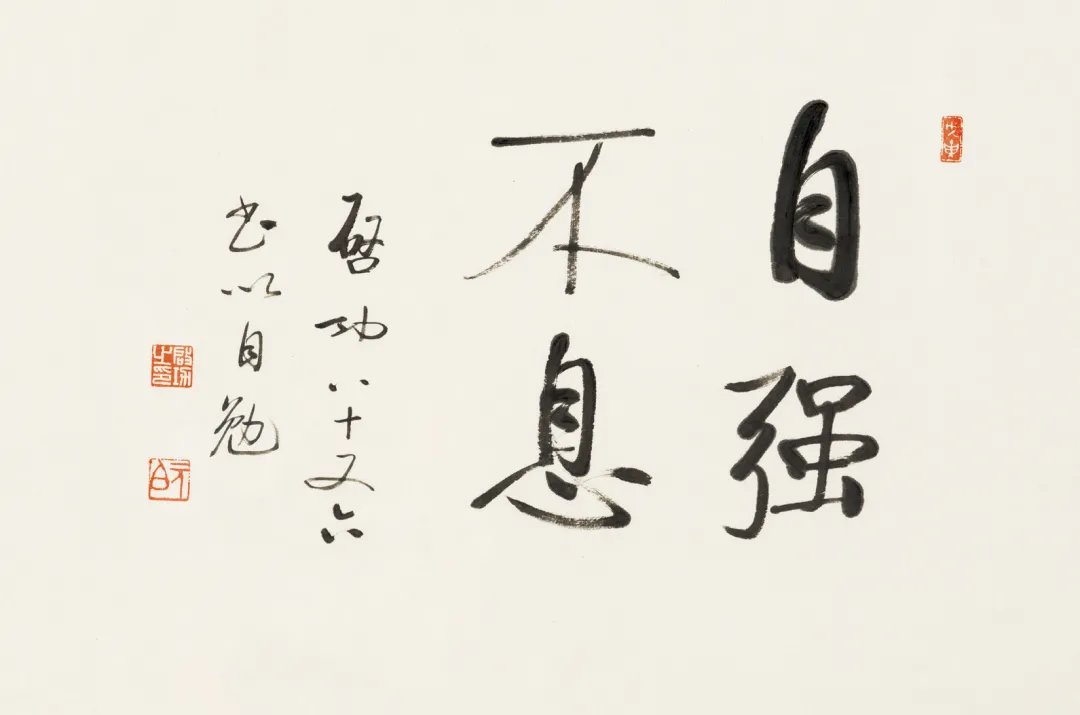 自强
不息
启功八十又六
书以自勉
启功之印
元白